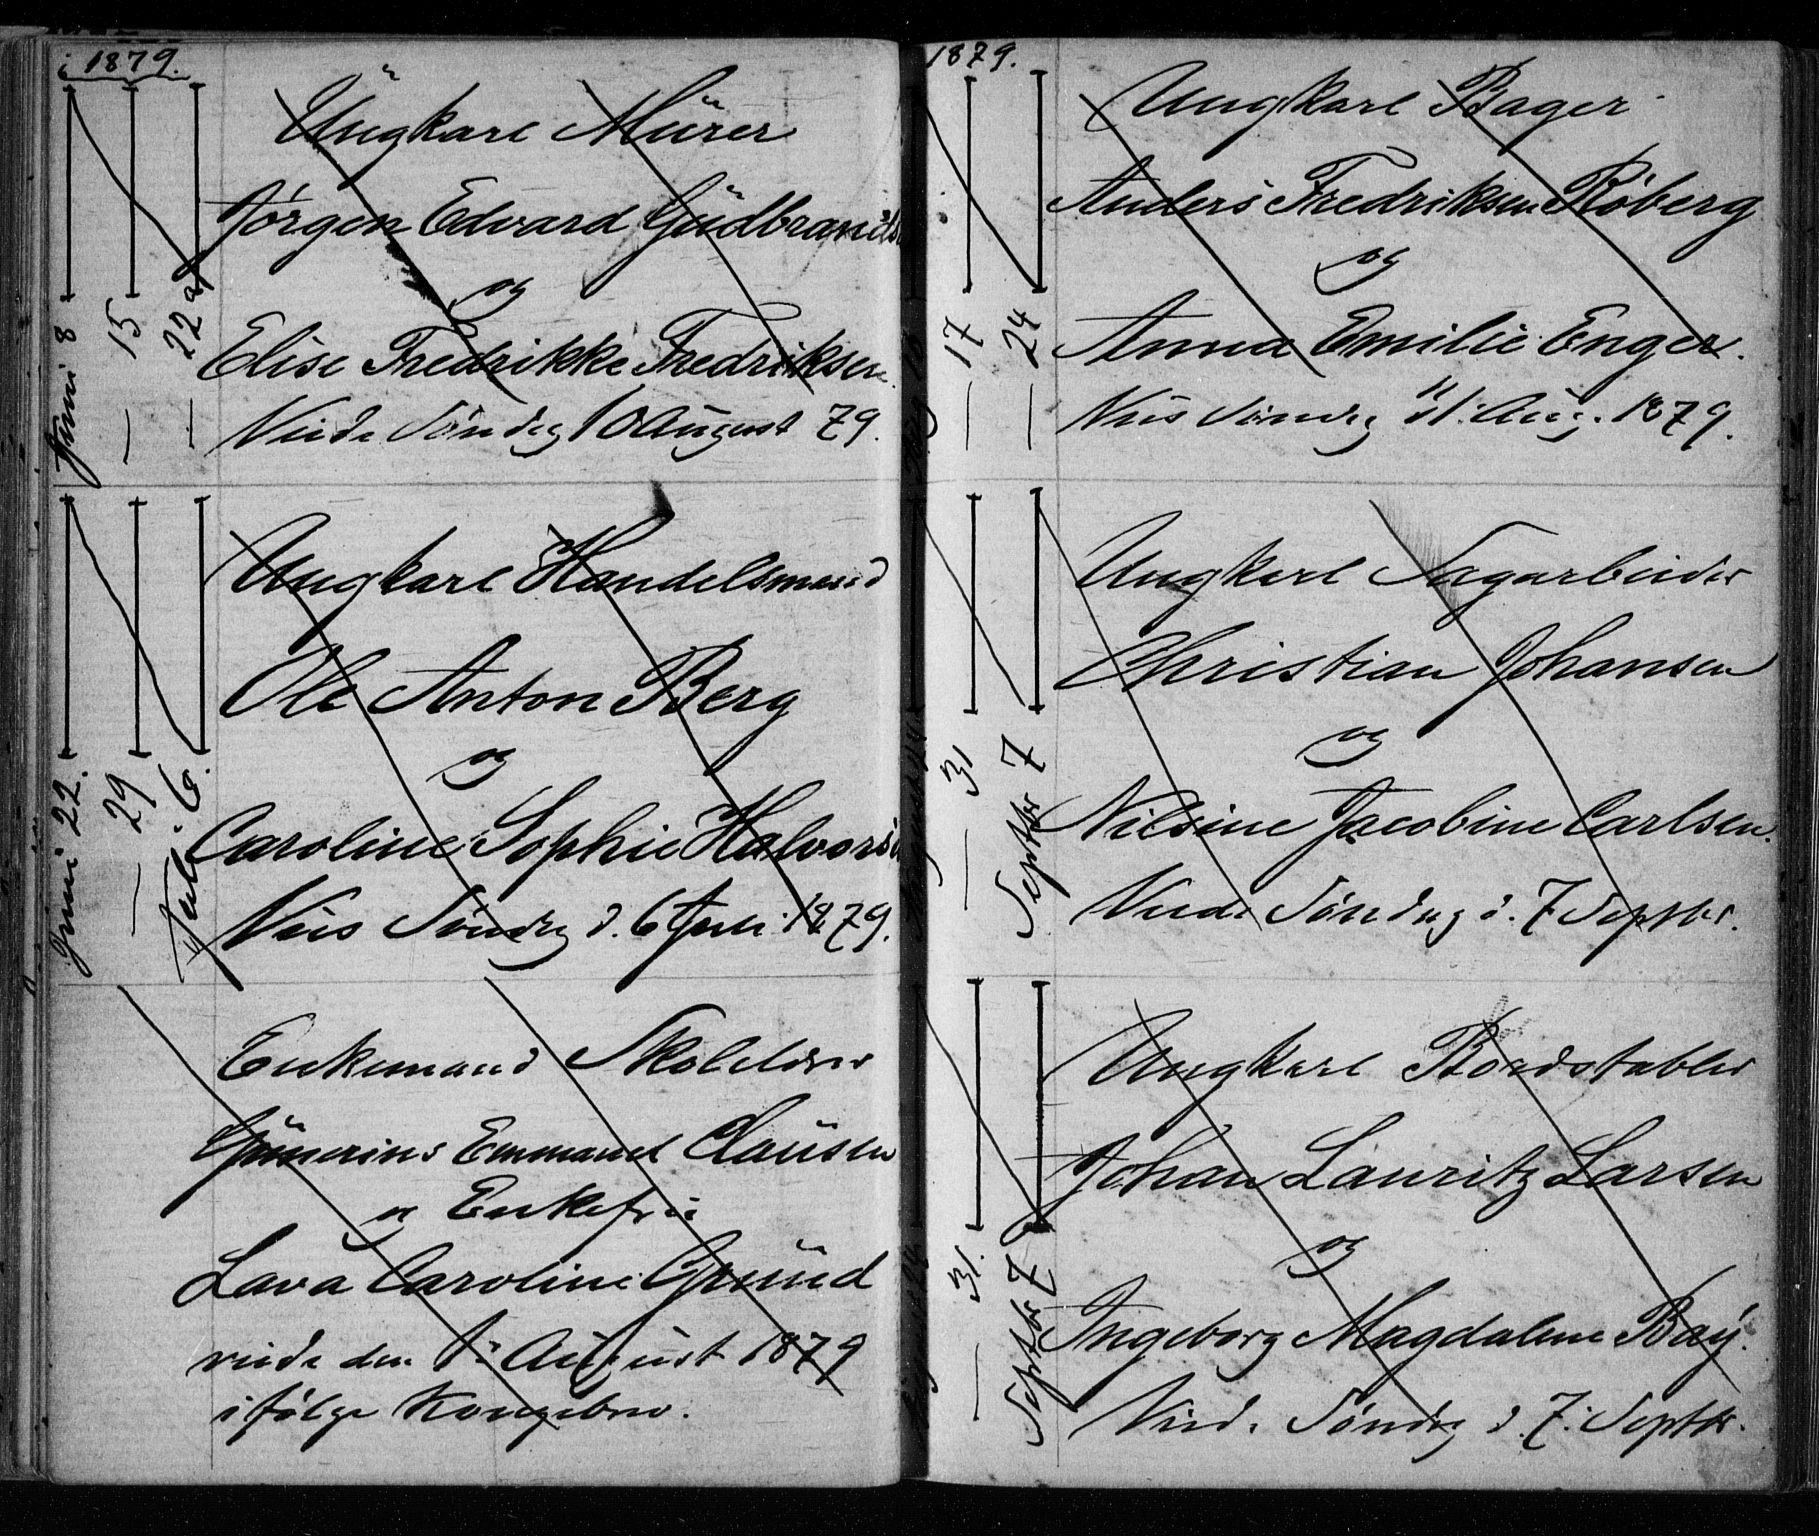 i 1879.
Ungkarl Murer
Jørgen Edvard Gudbrandsen
og
Elise Fredrikke Fredriksen
Viede Søndag 10 August 79.
Juni 8
— 15
— 22
Ungkarl Handelsmand
Ole Anton Berg
og
Caroline Sophie Halvorsen
Vies Søndag d. 6 Juli 1879.
Juni 22.
— 29
Juli 6.
Enkemand Skolelærer
Emmanuel Clausen
og Enkefru
Lava Caroline Grund
viede den August 1879
ifølge Kongebrev.
1879.
Ungkarl Bager
Anders Fredriksen Røberg
og
Anna Emilie Enger.
Vies Søndag Aug. 1879.
— 17
— 24
Ungkarl Sagarbeider
Christian Johansen
og
Nilsine Jacobine Carlsen.
Viede Søndag d. 7 Septbr.
— 31
Septbr 7
Ungkarl Bordstabler
Johan Lauritz Larsen
og
Ingeborg Magdalene Bay.
Vied. Søndag d. 7. Septbr.
— 31.
Septbr 7